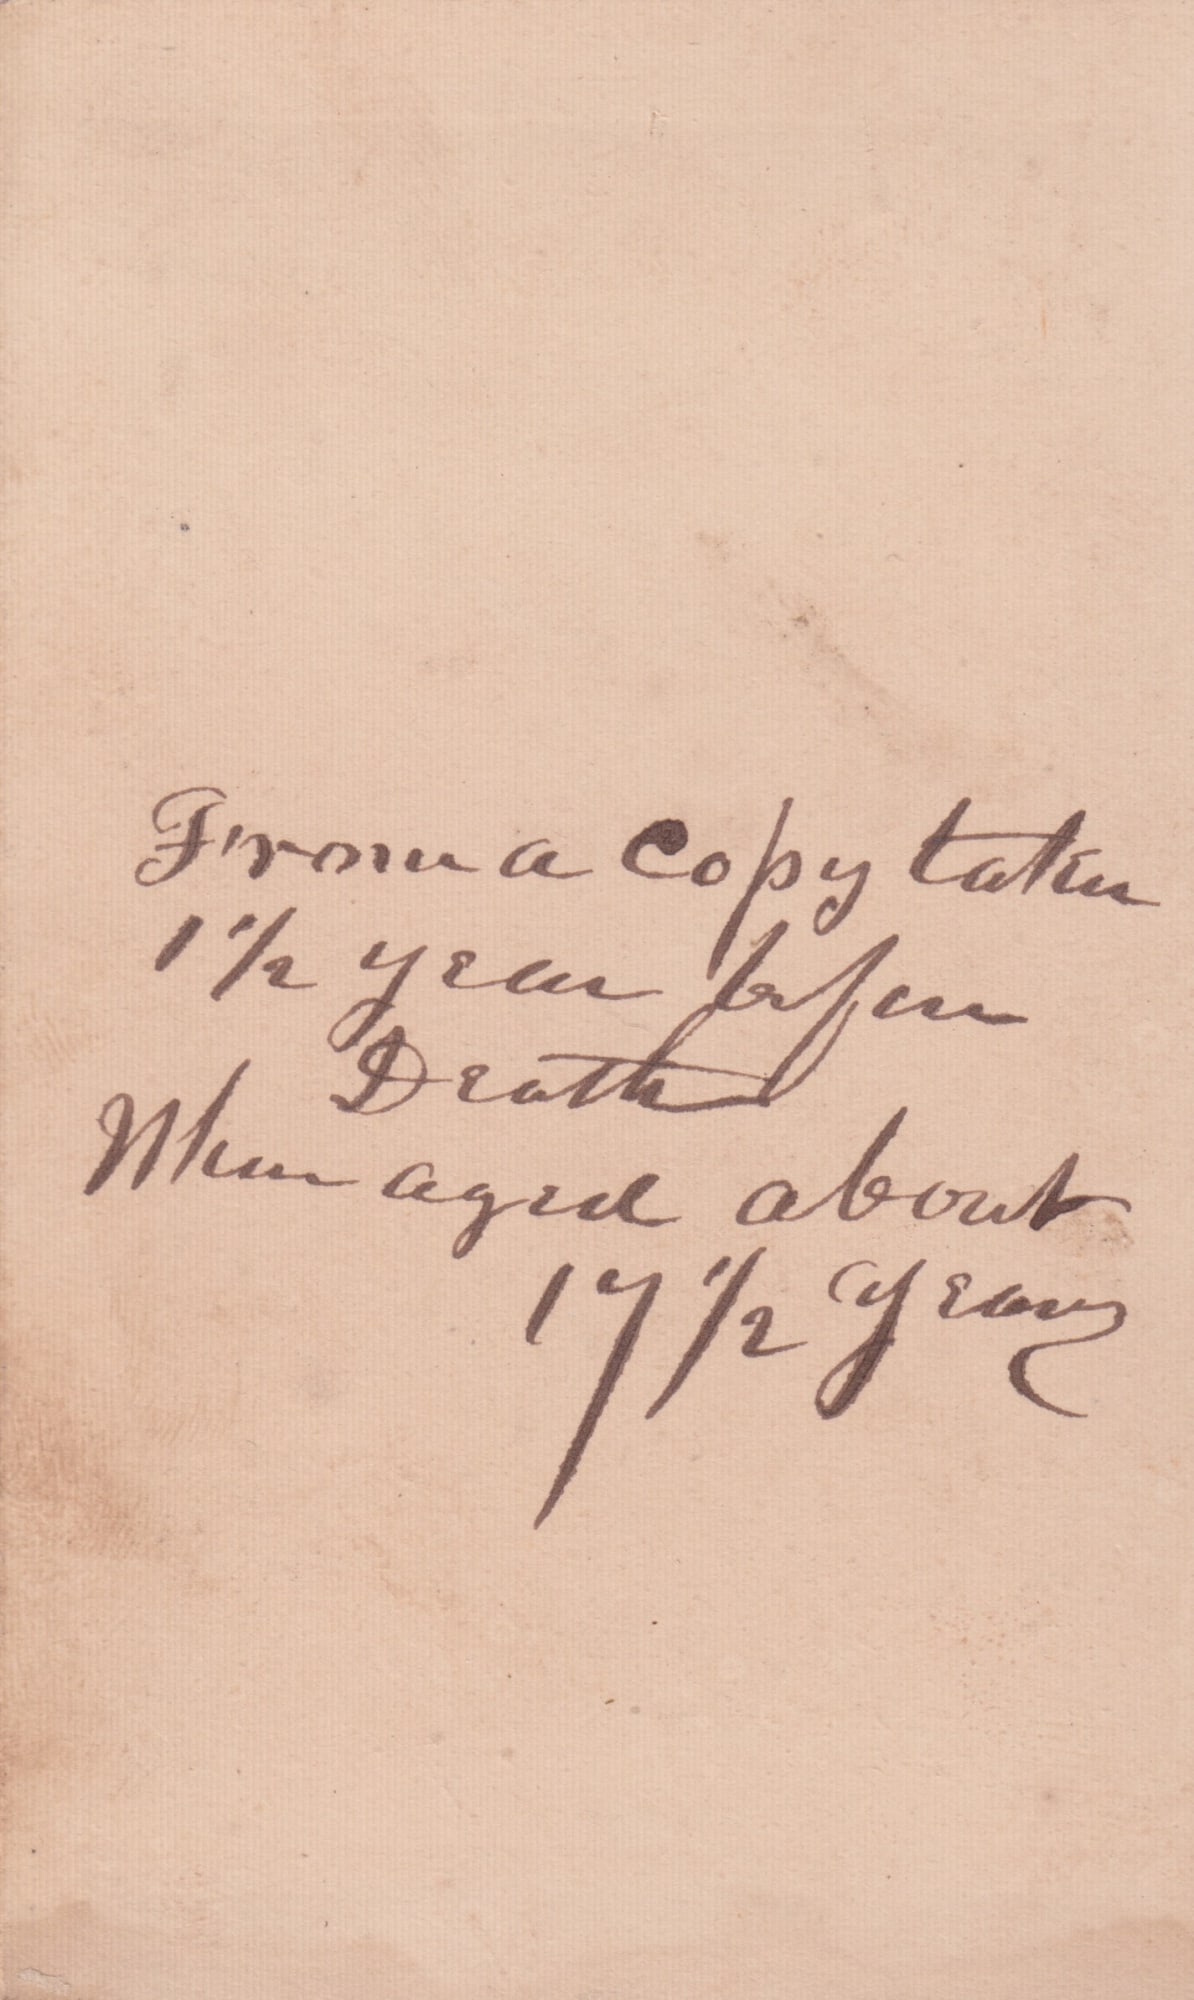 From a Copy taken
1 1/2 year before
Death
When aged about
17 1/2 years